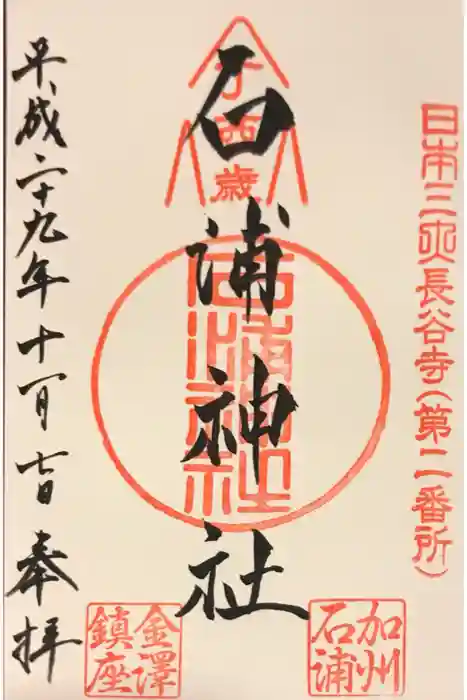 日本三大長谷寺(第二番所)
丁酉歳
石浦神社
石浦神社
加州
石浦
金澤
鎮座
平成二十九年十一月日
奉拝